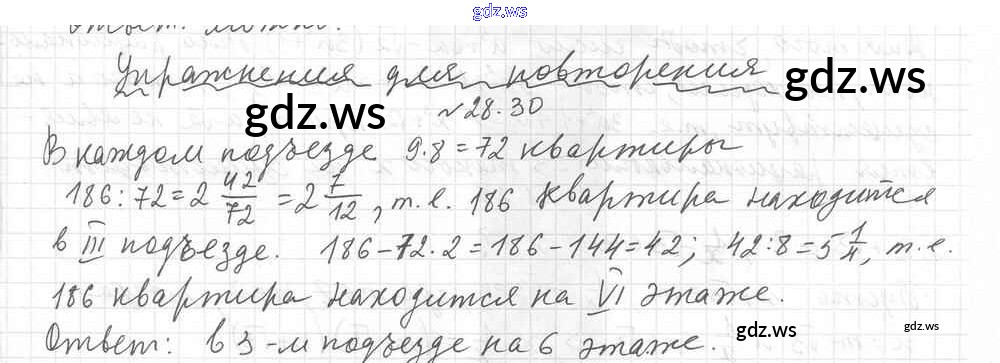 gdz.ws
Ответ: можно.
Упражнения для повторения
gdz.ws
gdz.ws
№28.30
В каждом подъезде 9·8=72 квартиры
186:72=2 42/72 = 2 7/12, т.е. 186 квартира находится
в III подъезде. 186-72·2=186-144=42; 42:8=5 1/4, т.е.
186 квартира находится на VI этаже.
gdz.ws
gdz.ws
Ответ: в 3-м подъезде на 6 этаже.